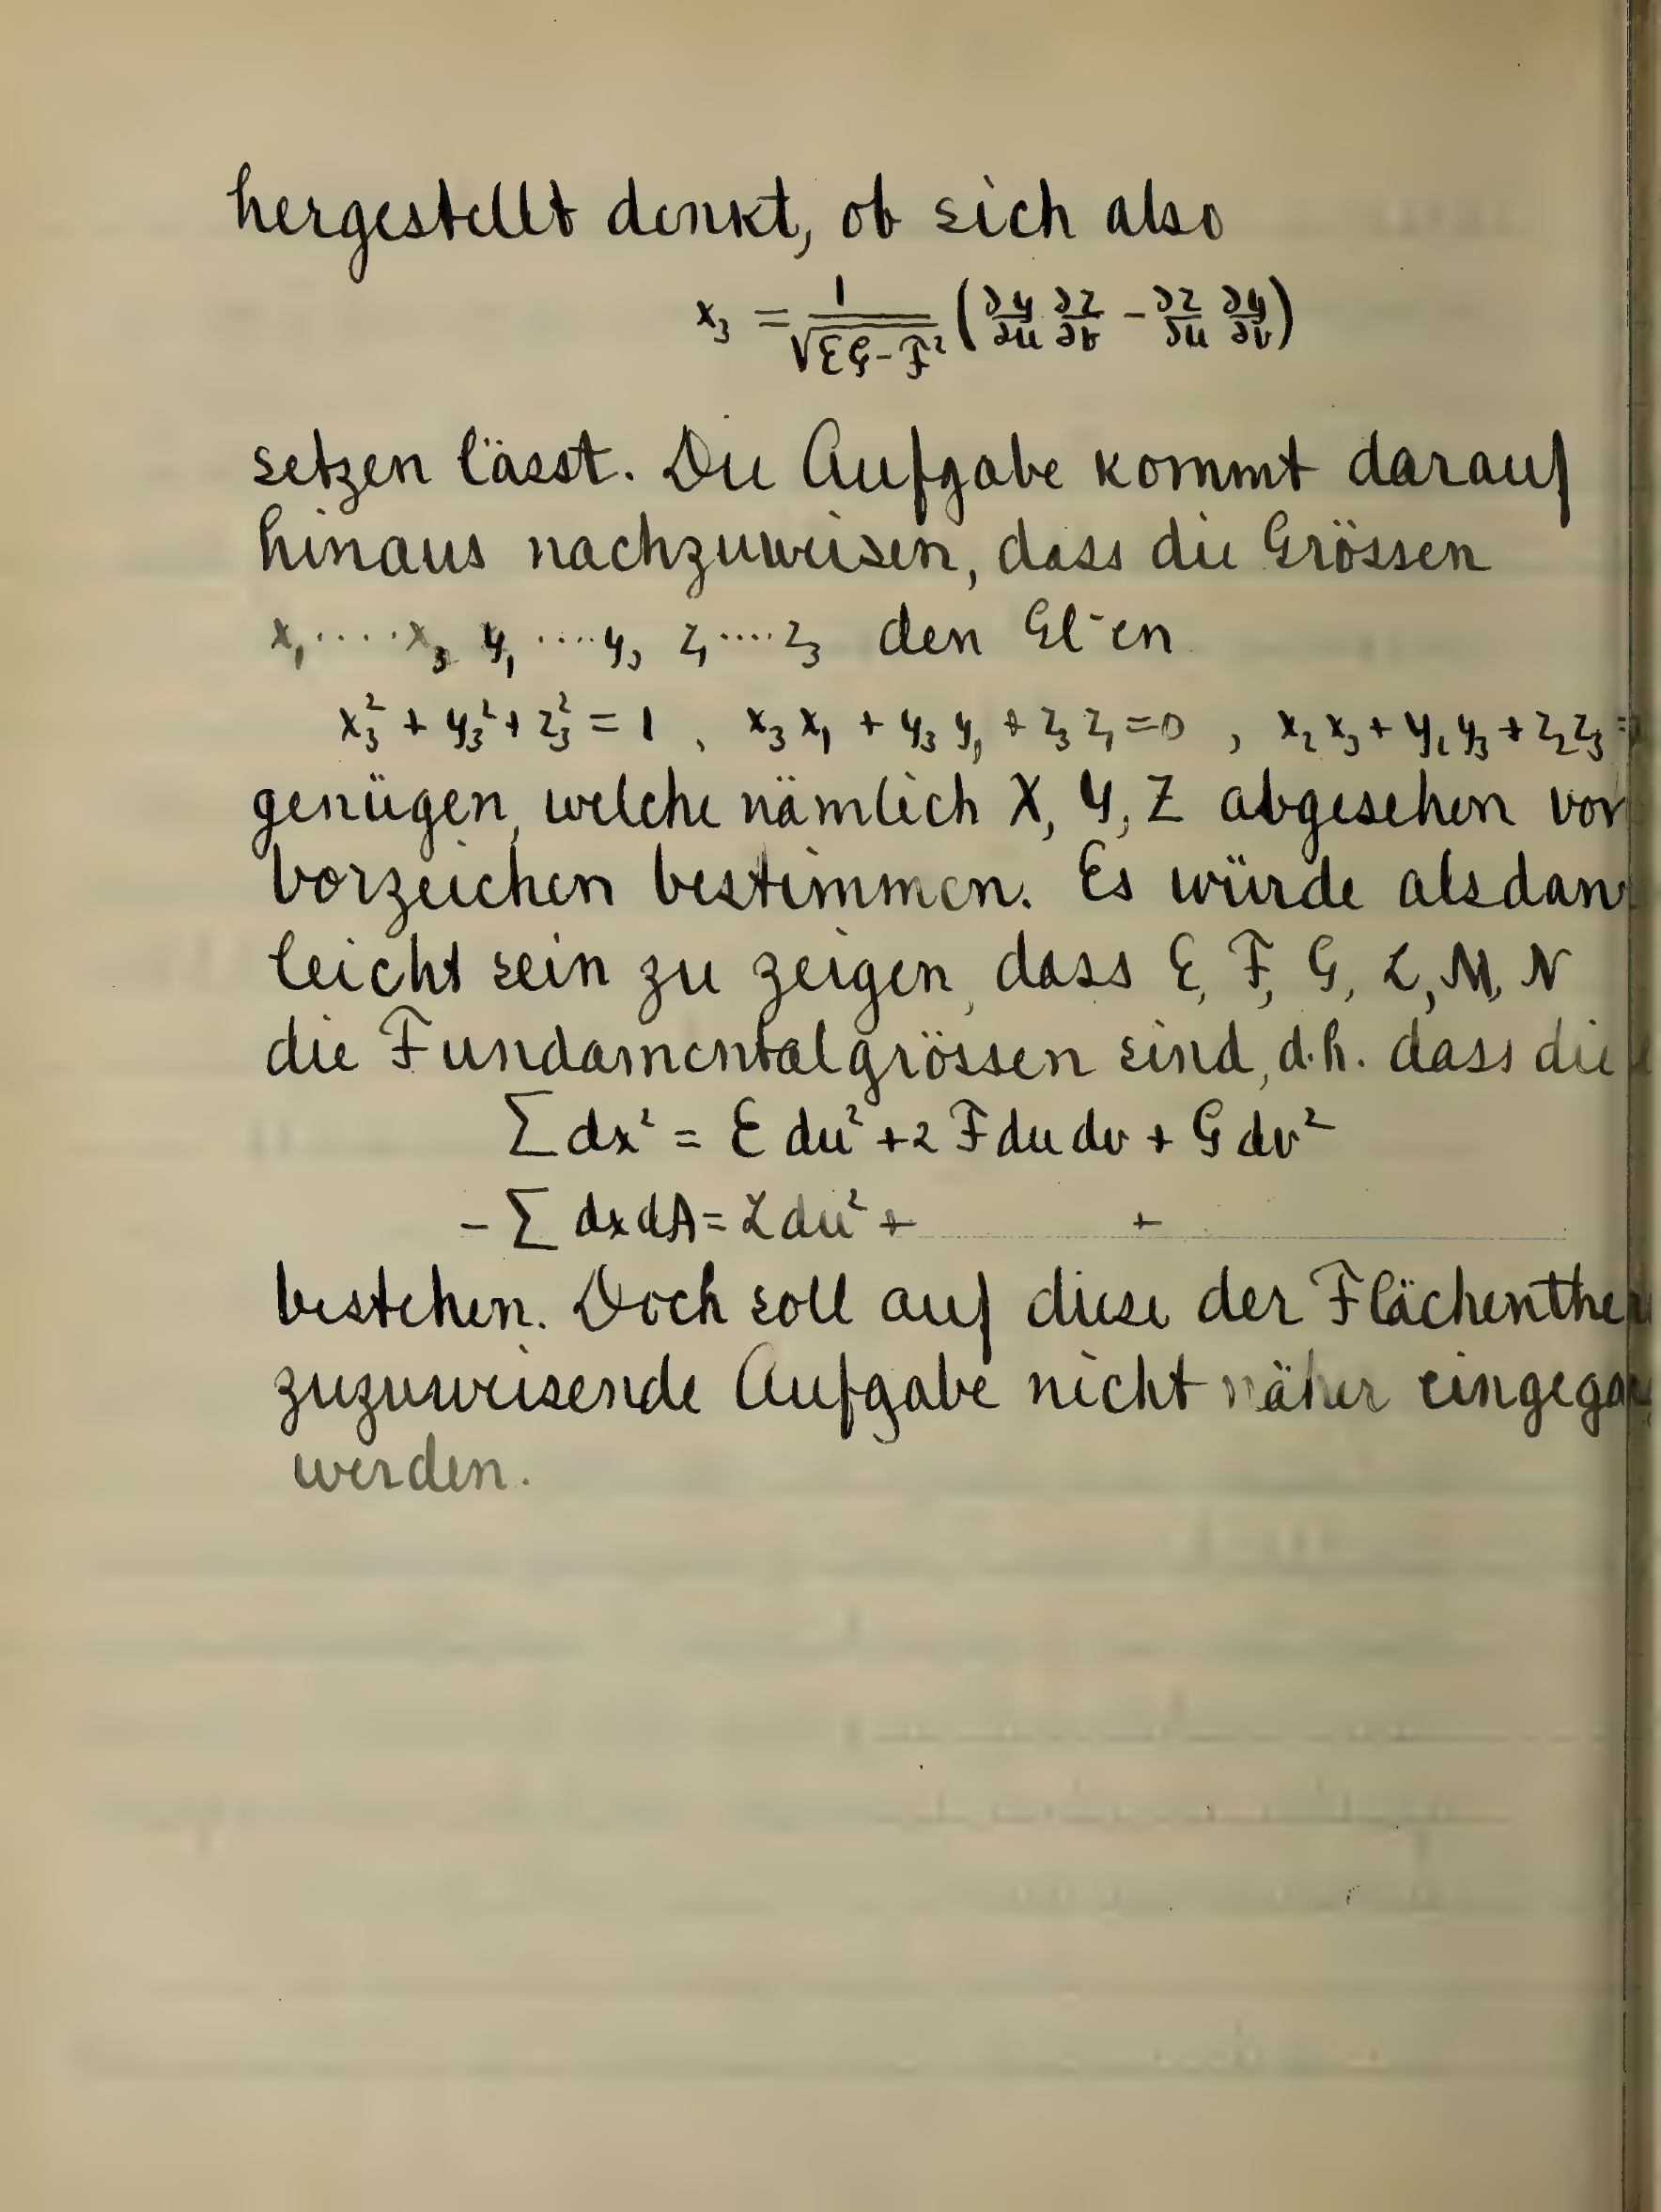 hergestellt denkt, ob sich also
x₃ = 1/√(EG-F²) (∂y/∂u ∂z/∂v - ∂z/∂u ∂y/∂v)
setzen lässt. Die Aufgabe kommt darauf
hinaus nachzuweisen, dass die Grössen
x₁ ‥‥ x₃ y₁ ‥‥ y₃ z₁ ‥‥ z₃ den Gl-en
x₃² + y₃² + z₃² = 1 , x₃ x₁ + y₃ y₁ + z₃ z₁ = 0 , x₂ x₃ + y₂ y₃ + z₂ z₃ =
genügen, welche nämlich X, Y, Z abgesehen vom
Vorzeichen bestimmen. Es würde alsdan
leicht sein zu zeigen, dass E, F, G, L, M, N
die Fundamentalgrössen sind, d.h. dass die
∑ dx² = E du² + 2 F du dv + G dv²
- ∑ dx dA = L du² + +
bestehen. Doch soll auf diese der Flächenthe
zuzuweisende Aufgabe nicht näher eingega
werden.